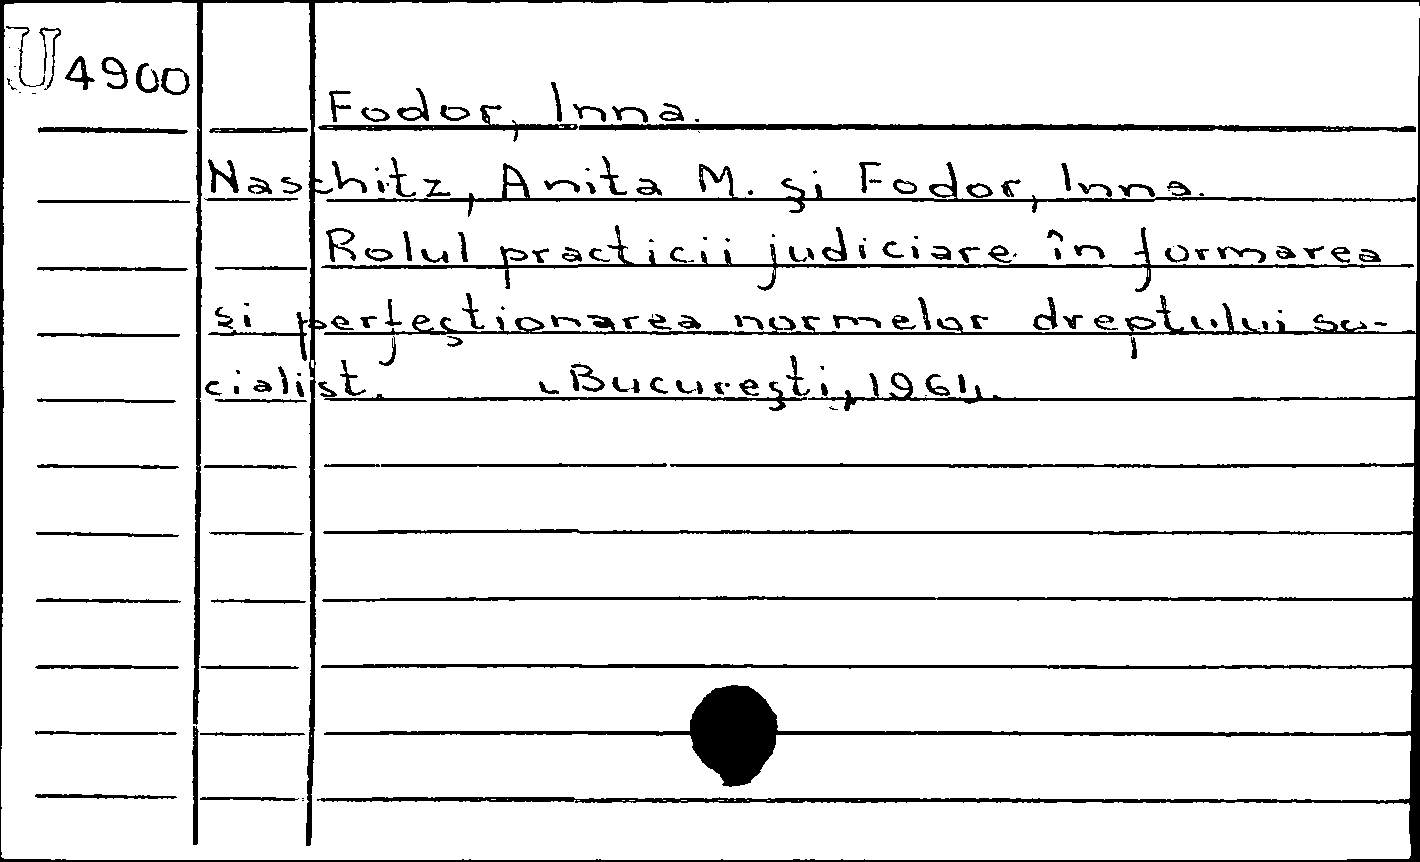 U 4900
Fodor, Inna.
Naschitz, Anita M. şi Fodor, Inna.
Rolul practicii judiciare în formarea
şi perfecţionarea normelor dreptului so-
cialist. Bucureşti, 1961.